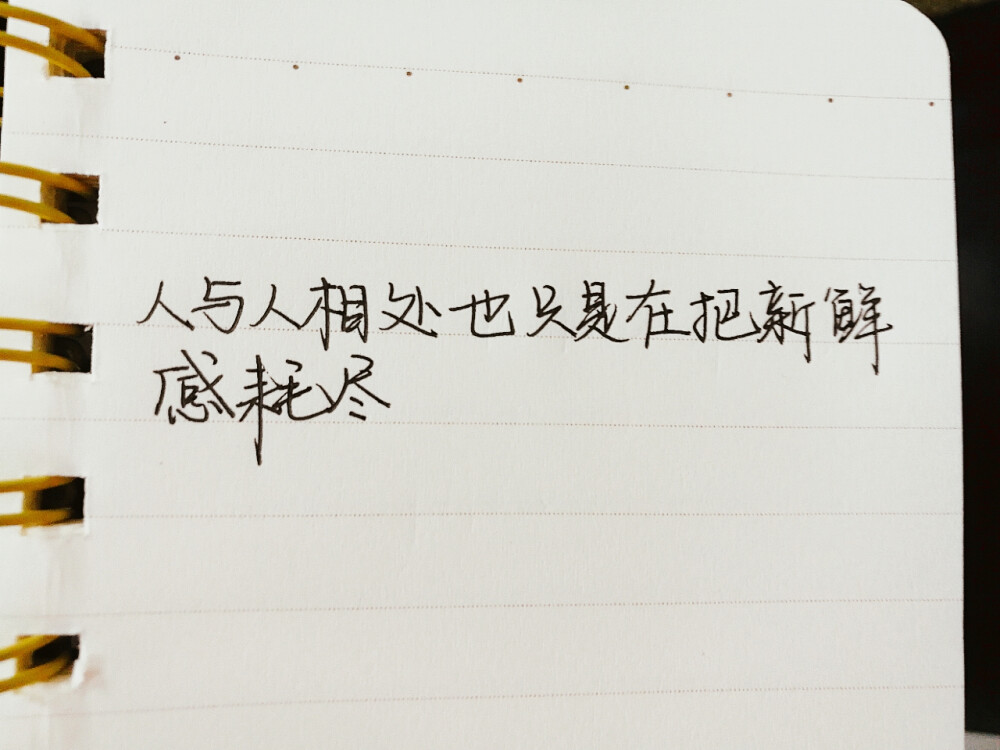 人与人相处也只是在把新鲜
感耗尽